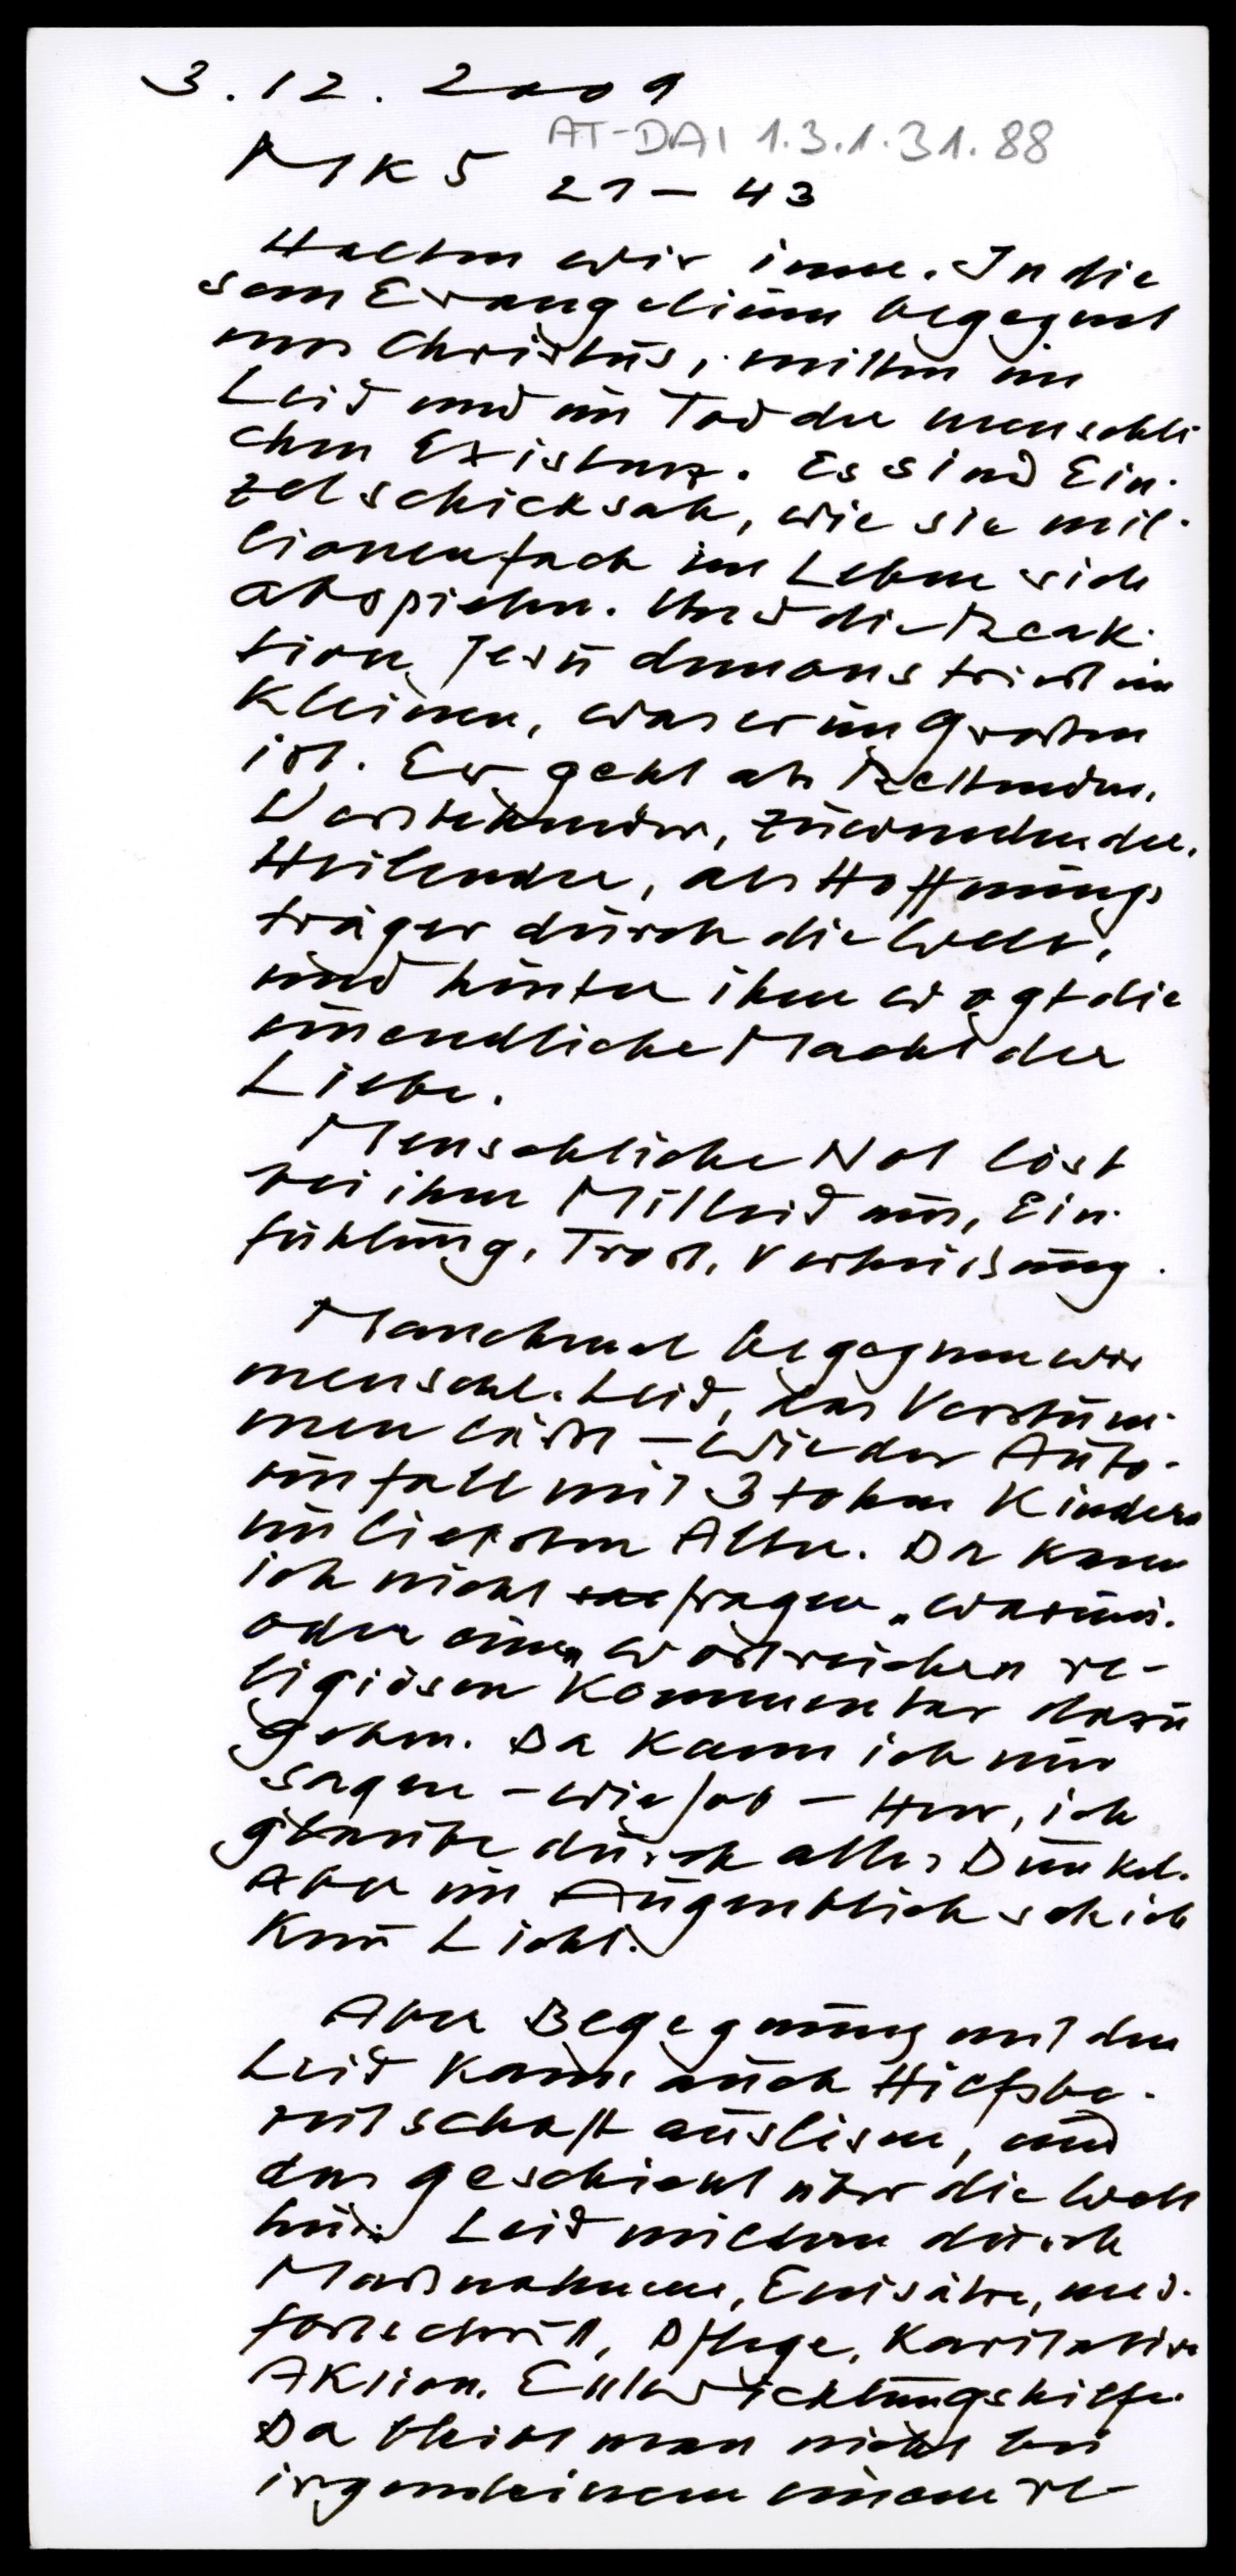 3.12.2009
AT-DAI 1.3.1.31.88
Mk 5 21-43
Halten wir inne. In die
sem Evangelium begegnet
uns Christus, mitten im
Leid und im Tod der menschli
chen Existenz. Es sind Ein-
zelschicksale, wie sie mil-
lionenfach im Leben sich
abspielen. Und die Reak-
tion Jesu demonstriert im
Kleinen, was er im Großen
ist. Er geht als Rettender,
Verstehender, zuwendender,
Heilender, als Hoffnungs
träger durch die Welt,
und hinter ihm wogt die
unendliche Macht der
Liebe.
Menschliche Not löst
bei ihm Mitleid aus, Ein-
fühlung, Trost, Verheißung.
Manchmal begegnen wir
menschl. Leid, das Verstum-
men läßt - wie der Auto-
unfall mit 3 toten Kindern
im liebsten Alter. Da kann
ich nicht fragen „warum.
oder einen wortreichen re-
ligiösen Kommentar dazu
geben. Da kann ich nur
sagen - wie Job - Herr, ich
glaube durch alles Dunkel.
Aber im Augenblick seh ich
kein Licht.
Aber Begegnung mit dem
Leid kann auch Hilfsbe-
reitschaft auslösen, und
das geschieht über die Welt
hin: Leid mildern durch
Maßnahmen, Einsätze, med.
fortschritt, Pflege, Karitative
Aktion, Entwicklungshilfe.
Da bleibt man nicht bei
irgendeinem re-